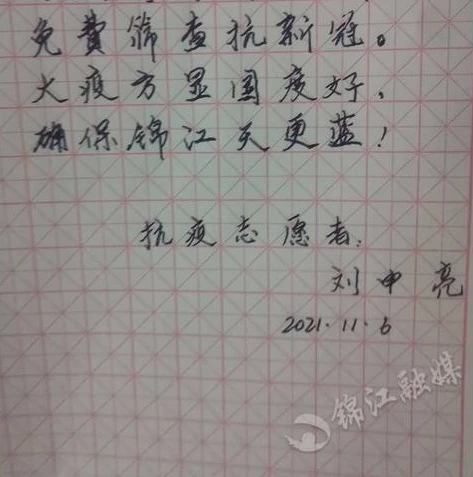 免費筛查抗新冠。
大疫方显国度好，
确保锦江天更蓝！
抗疫志愿者：
刘申亮
2021.11.6
锦江融媒